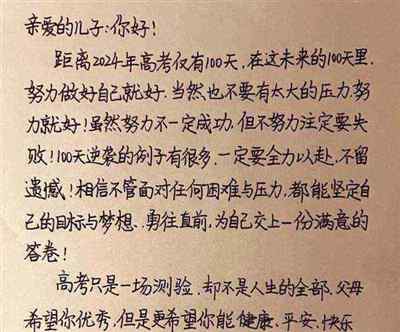 亲爱的儿子:你好!
距离2024年高考仅有100天,在这未来的100天里,
努力做好自己就好,当然也不要有太大的压力,努
力就好!虽然努力不一定成功,但不努力注定要失
败!100天逆袭的例子有很多,一定要全力以赴,不留
遗憾!相信不管面对任何困难与压力,都能坚定自
己的目标与梦想、勇往直前,为自己交上一份满意的
答卷!
高考只是一场测验,却不是人生的全部,父母
希望你优秀,但是更希望你能健康、平安、快乐